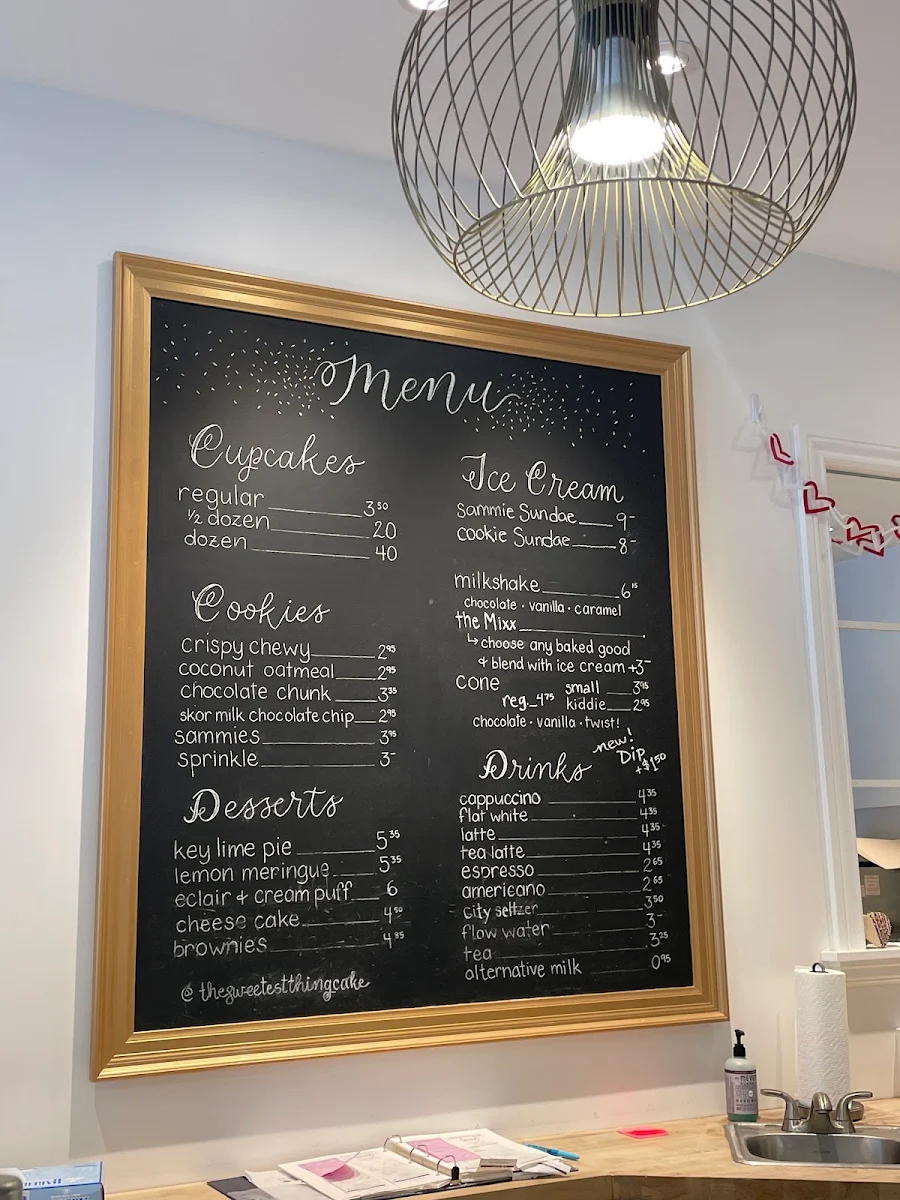 Menu
Cupcakes
regular 3 50
1/2 dozen 20
dozen 40
Cookies
crispy chewy 2 95
coconut oatmeal 2 95
chocolate chunk 3 35
skor milk chocolate chip 2 95
sammies 3 95
sprinkle 3-
Desserts
key lime pie 5 35
lemon meringue 5 35
eclair + cream puff 6
cheese cake 4 50
brownies 4 85
@thesweetestthingcake
Ice Cream
sammie Sundae 9-
cookie Sundae 8-
milkshake 6 15
chocolate · vanilla · caramel
the Mixx
↳ choose any baked good
+ blend with ice cream +3-
cone small 3 95
reg. 4 75 kiddie 2 95
chocolate · vanilla · twist!
new!
Dip
+$1 50
Drinks
cappuccino 4 35
flat white 4 35
latte 4 35
tea latte 4 35
espresso 2 65
americano 2 65
city seltzer 3 50
flow water 3-
tea 3 25
alternative milk 0 95